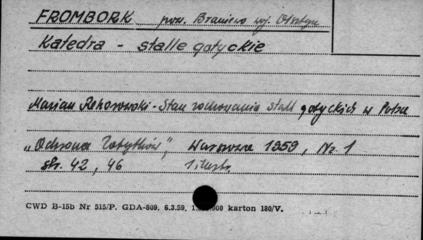 FROMBORK pow. Braniewo woj. Olsztyn
Katedra - stalle gotyckie
Marian Rehorowski - Stan zachowania stall gotyckich w Polsce
„Ochrona Zabytków", Warszawa 1959, Nr. 1
str. 42, 46 1 ilustr.
CWD B-15b Nr 515/P. GDA-509. 6.3.59. 000 karton 180/V.